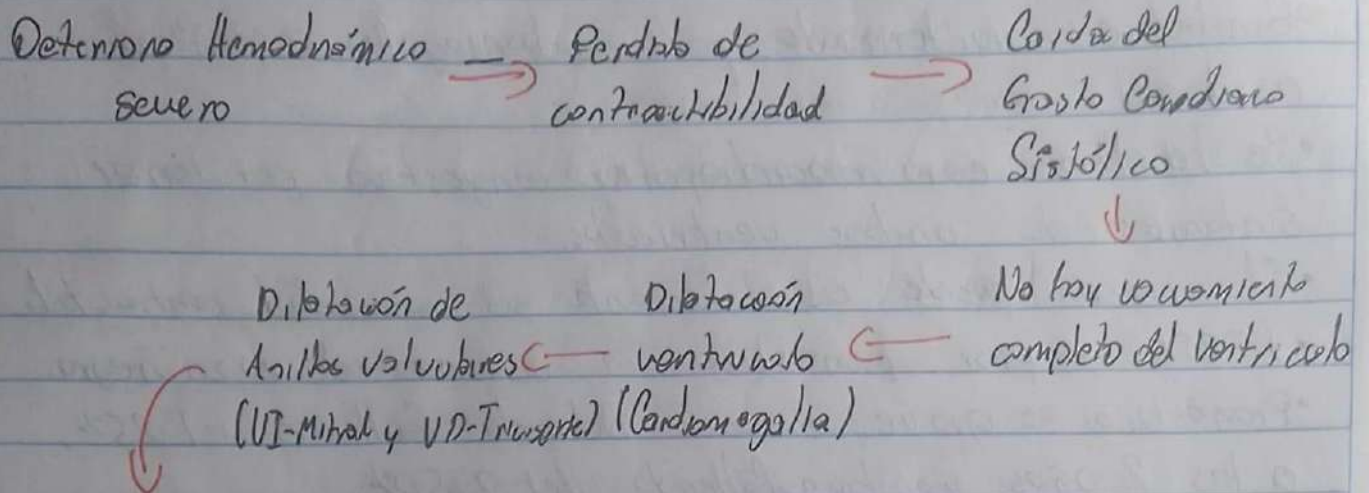 Deterioro Hemodinámico
severo
Perdida de
contractibilidad
Caida del
Gasto Cardiaco
Sistólico
No hay vaciamiento
completo del ventriculo
Dilatación
ventriculo
(Cardiomegalia)
Dilatación de
Anillos valvulares
(VI-Mitral y VD-Tricuspide)